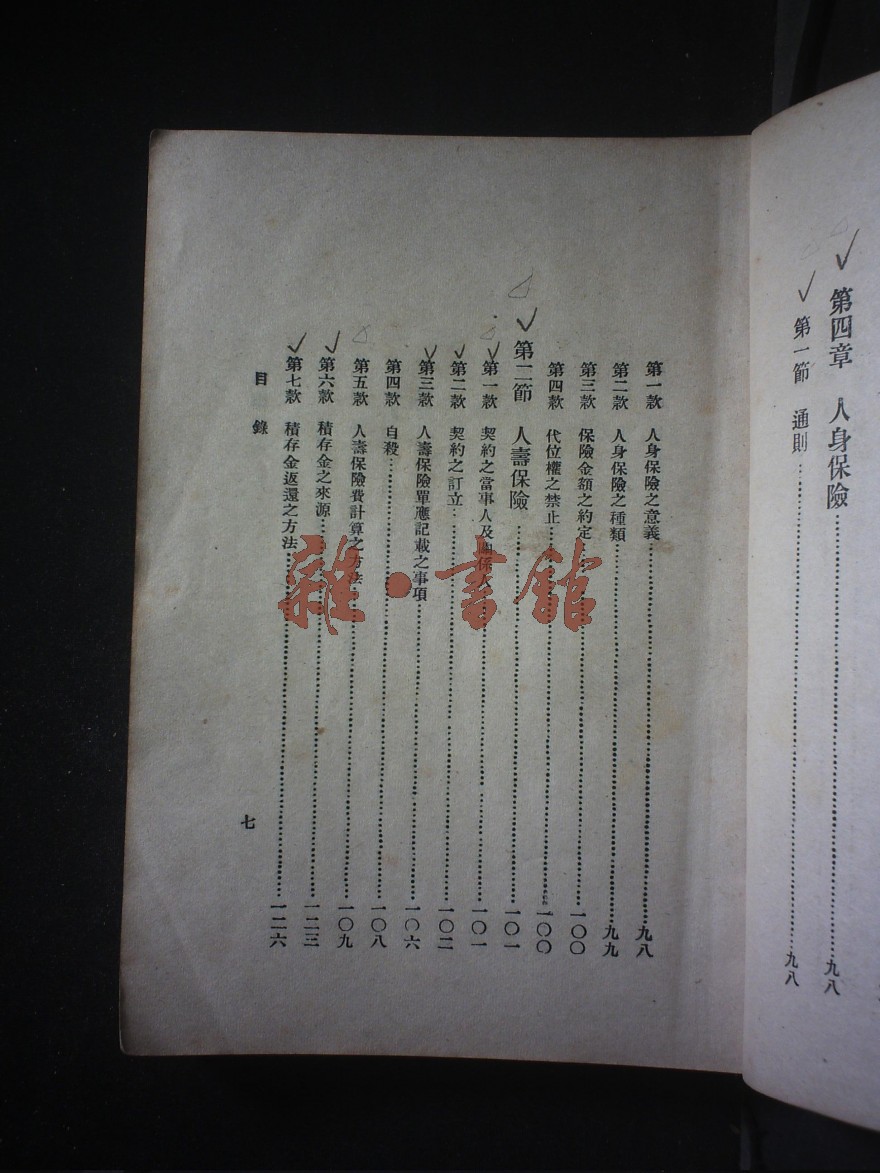 第四章　人身保險……九八
第一節　通則……九八
第一款　人身保險之意義……九八
第二款　人身保險之種類……九九
第三款　保險金額之約定……一〇〇
第四款　代位權之禁止……一〇〇
第二節　人壽保險……一〇一
第一款　契約之當事人及關係人……一〇一
第二款　契約之訂立……一〇二
第三款　人壽保險單應記載之事項……一〇六
第四款　自殺……一〇八
第五款　人壽保險費計算之方法……一〇九
第六款　積存金之來源……一二三
第七款　積存金返還之方法……一二六
目錄
七
雜·書館